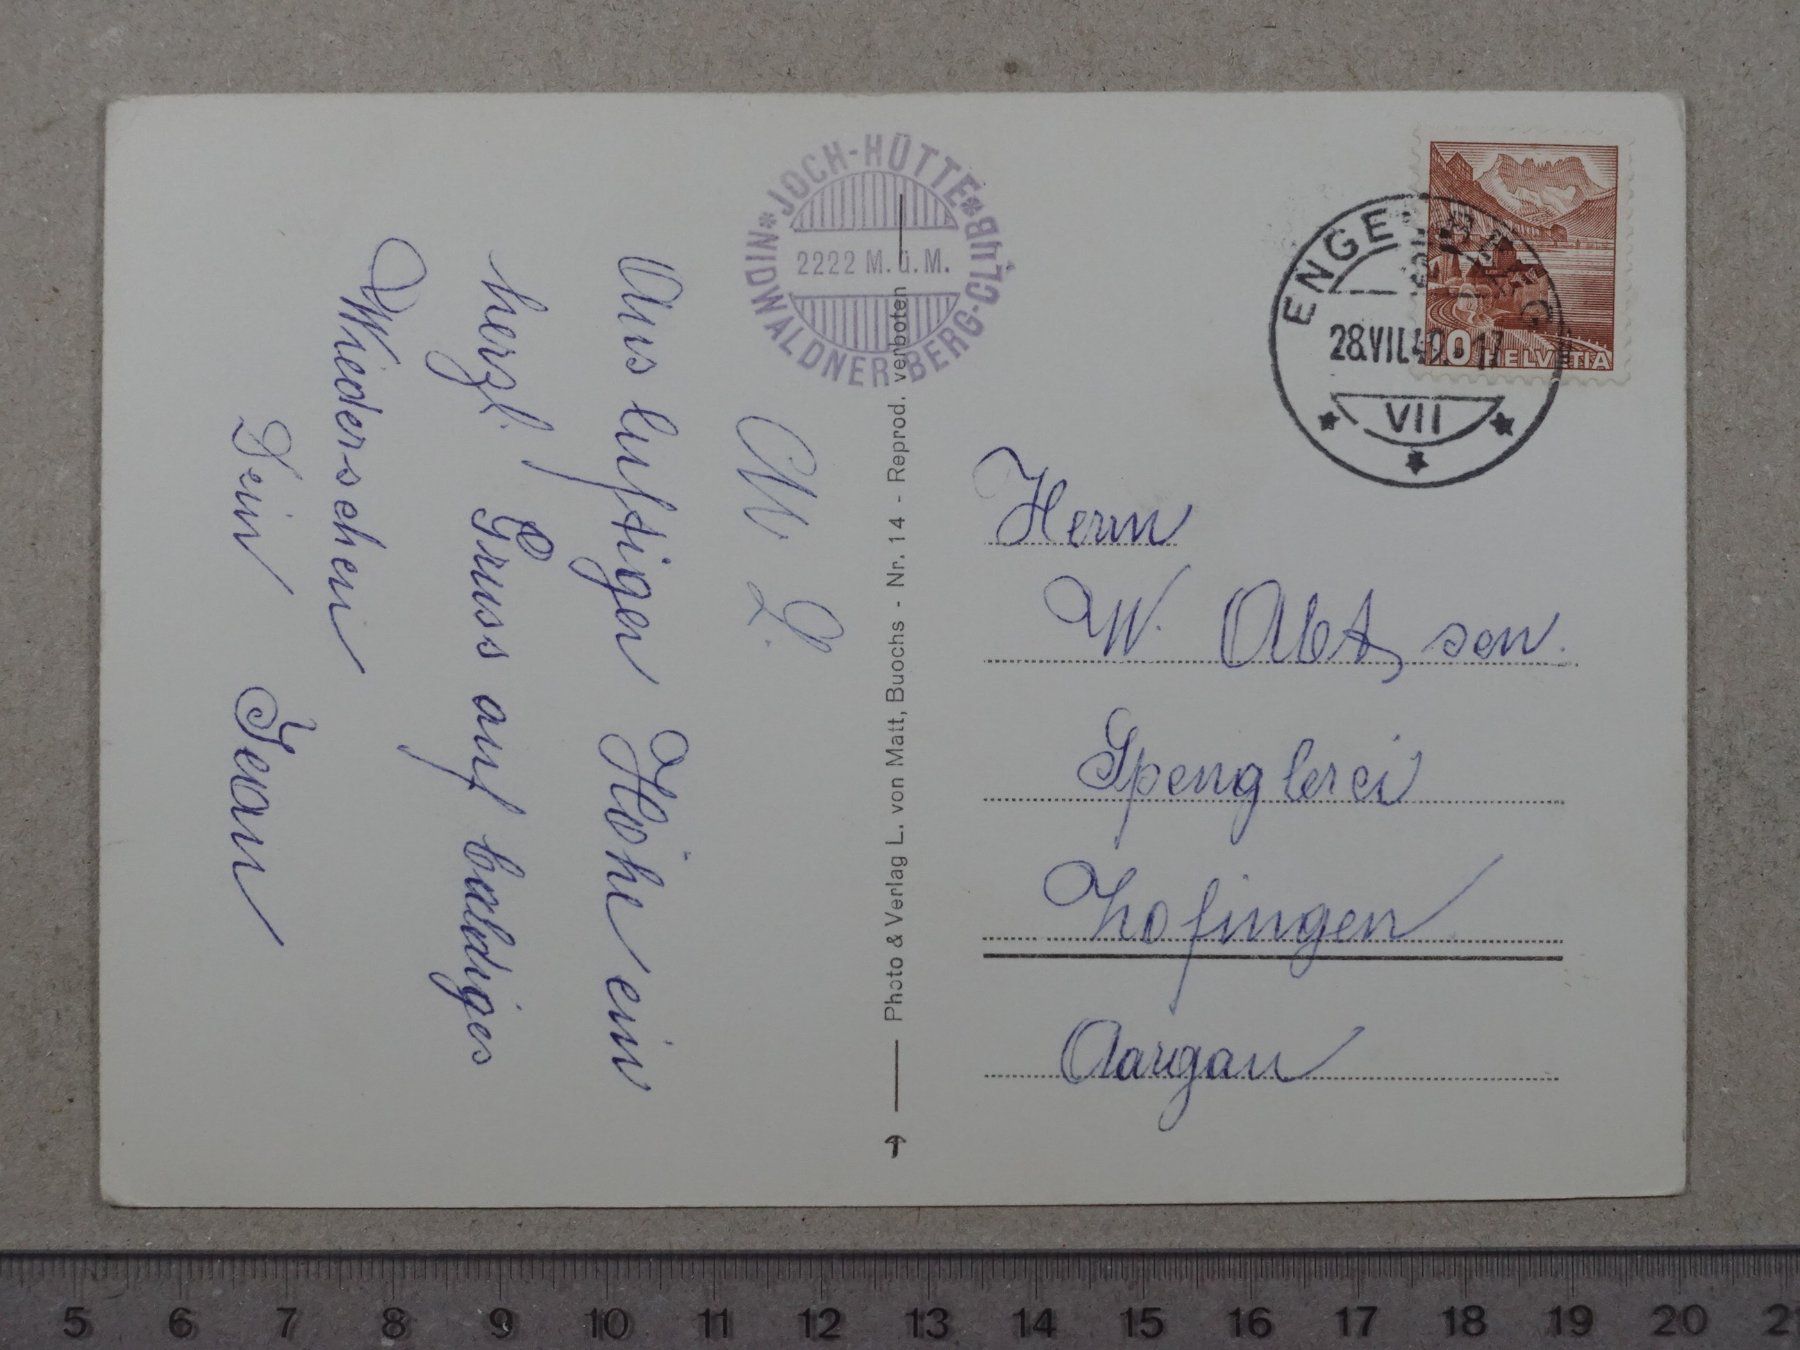 JOCH-HÜTTE * BÜTZI BERG-CLUB NIDWALDNER *
2222 M.ü.M.
M. L.
Aus luftiger Höhe ein
herzl. Gruss auf baldiges
Wiedersehen
Dein Jean
Photo & Verlag L. von Matt, Buochs - Nr. 14 - Reprod. verboten
10 HELVETIA
ENGELBERG
28.VII.49. 17
VII
Herrn
W. Abt, sen.
Spenglerei
Zofingen
Aargau
5 6 7 8 9 10 11 12 13 14 15 16 17 18 19 20 21